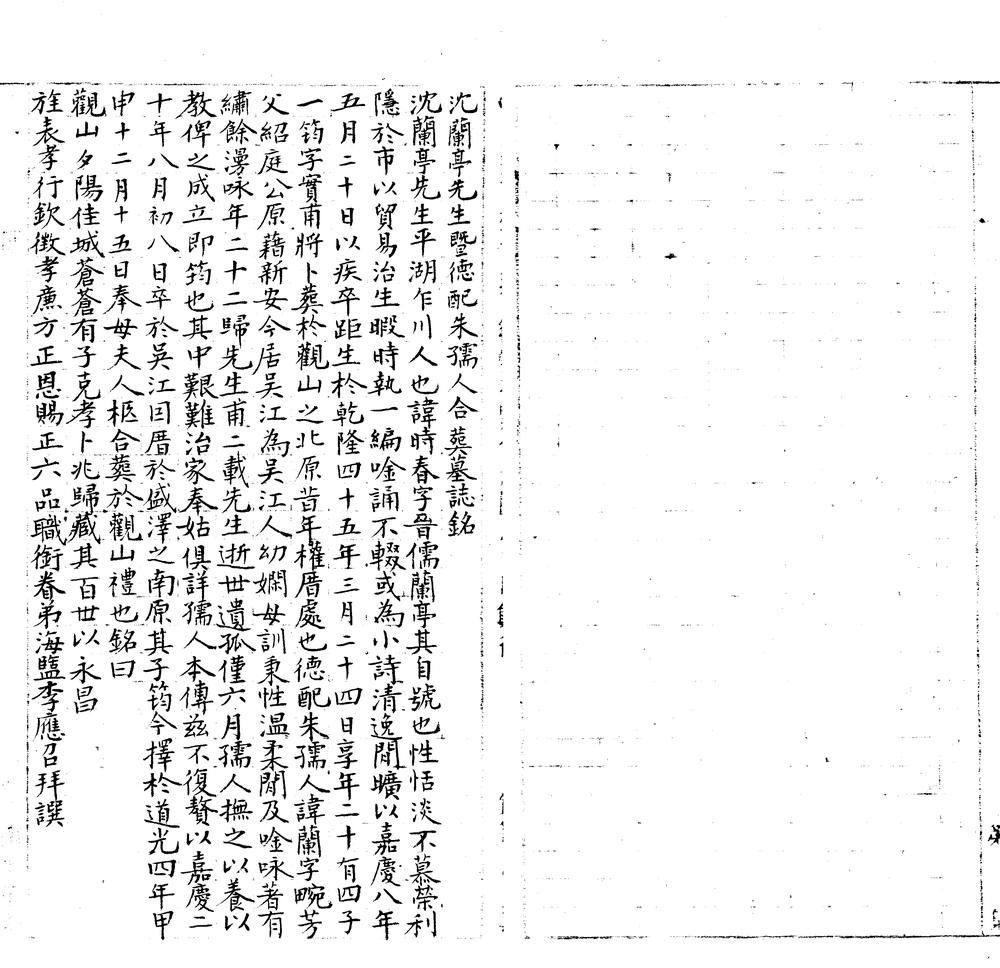 沈蘭亭先生暨德配朱孺人合葬墓誌銘
沈蘭亭先生平湖乍川人也諱時春字晉儒蘭亭其自號也性恬淡不慕榮利
隱於市以貿易治生暇時執一編唫誦不輟或為小詩清逸閒曠以嘉慶八年
五月二十日以疾卒距生於乾隆四十五年三月二十四日享年二十有四子
一筠字實甫將卜葬於觀山之北原昔年權厝處也德配朱孺人諱蘭字畹芳
父紹庭公原藉新安今居吴江為吴江人幼嫻母訓秉性温柔閒及唫咏著有
繡餘漫咏年二十二歸先生甫二載先生逝世遺孤僅六月孺人撫之以養以
教俾之成立即筠也其中艱難治家奉姑俱詳孺人本傳兹不復贅以嘉慶二
十年八月初八日卒於吳江因厝於盛澤之南原其子筠今擇於道光四年甲
申十二月十五日奉母夫人柩合葬於觀山禮也銘曰
觀山夕陽佳城蒼蒼有子克孝卜兆歸藏其百世以永昌
旌表孝行欽徵孝亷方正恩賜正六品職銜眷弟海鹽李應召拜譔